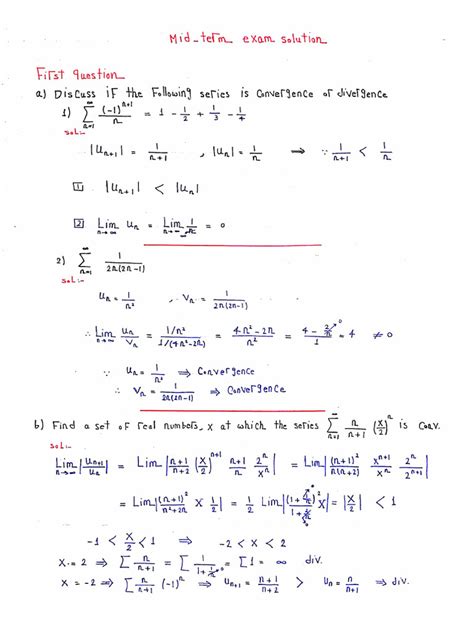 Mid-term exam solution
First question
a) Discuss if the Following series is Convergence or divergence
1) ∑_{n=1}^{∞} (-1)^{n+1}/n = 1 - 1/2 + 1/3 - 1/4
sol:-
|U_{n+1}| = 1/(n+1) , |U_n| = 1/n ⇒ ∵ 1/(n+1) < 1/n
1 |U_{n+1}| < |U_n|
2 Lim_{n→∞} U_n = Lim_{n→∞} 1/n = 0
2) ∑_{n=1}^{∞} 1/(2n(2n-1))
sol:-
U_n = 1/n² , V_n = 1/(2n(2n-1))
∴ Lim_{n→∞} U_n/V_n = (1/n²)/(1/(4n²-2n)) = (4n²-2n)/n² = (4 - 2/n)/1 = 4 ≠ 0
∵ U_n = 1/n² ⇒ Convergence
∴ V_n = 1/(2n(2n-1)) ⇒ Convergence
b) Find a set of real numbers, x at which the series ∑_{n=1}^{∞} n/(n+1) (x/2)^n is Conv.
sol:-
Lim |U_{n+1}/U_n| = Lim |(n+1)/(n+2) (x/2)^{n+1} (n+1)/n 2^n/x^n| = Lim |(n+1)²/(n(n+2)) x^{n+1}/x^n 2^n/2^{n+1}|
= Lim |(n+1)²/(n²+2n) x 1/2| = 1/2 Lim |(1+1/n)²/(1+2/n) x| = |x/2| < 1
-1 < x/2 < 1 ⇒ -2 < x < 2
x = 2 ⇒ ∑ n/(n+1) = ∑ 1/(1+1/n) = ∑ 1 = ∞ div.
x = -2 ⇒ ∑ n/(n+1) (-1)^n ⇒ U_{n+1} = (n+1)/(n+2) > U_n = n/(n+1) ⇒ div.